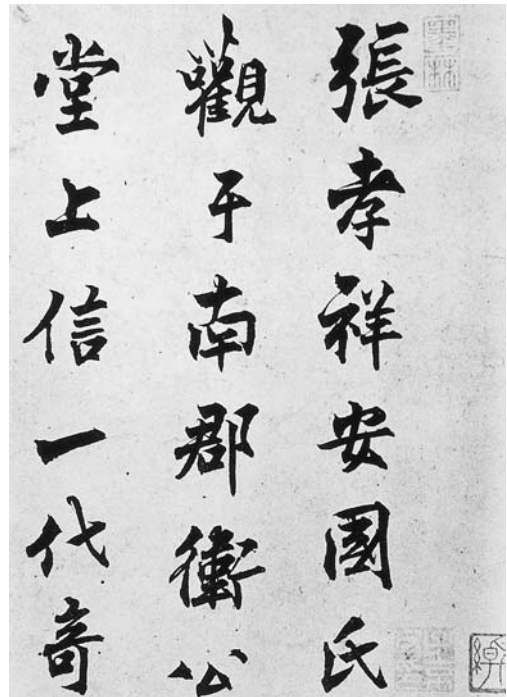 張孝祥安國氏
觀于南郡衛公
堂上信一代奇